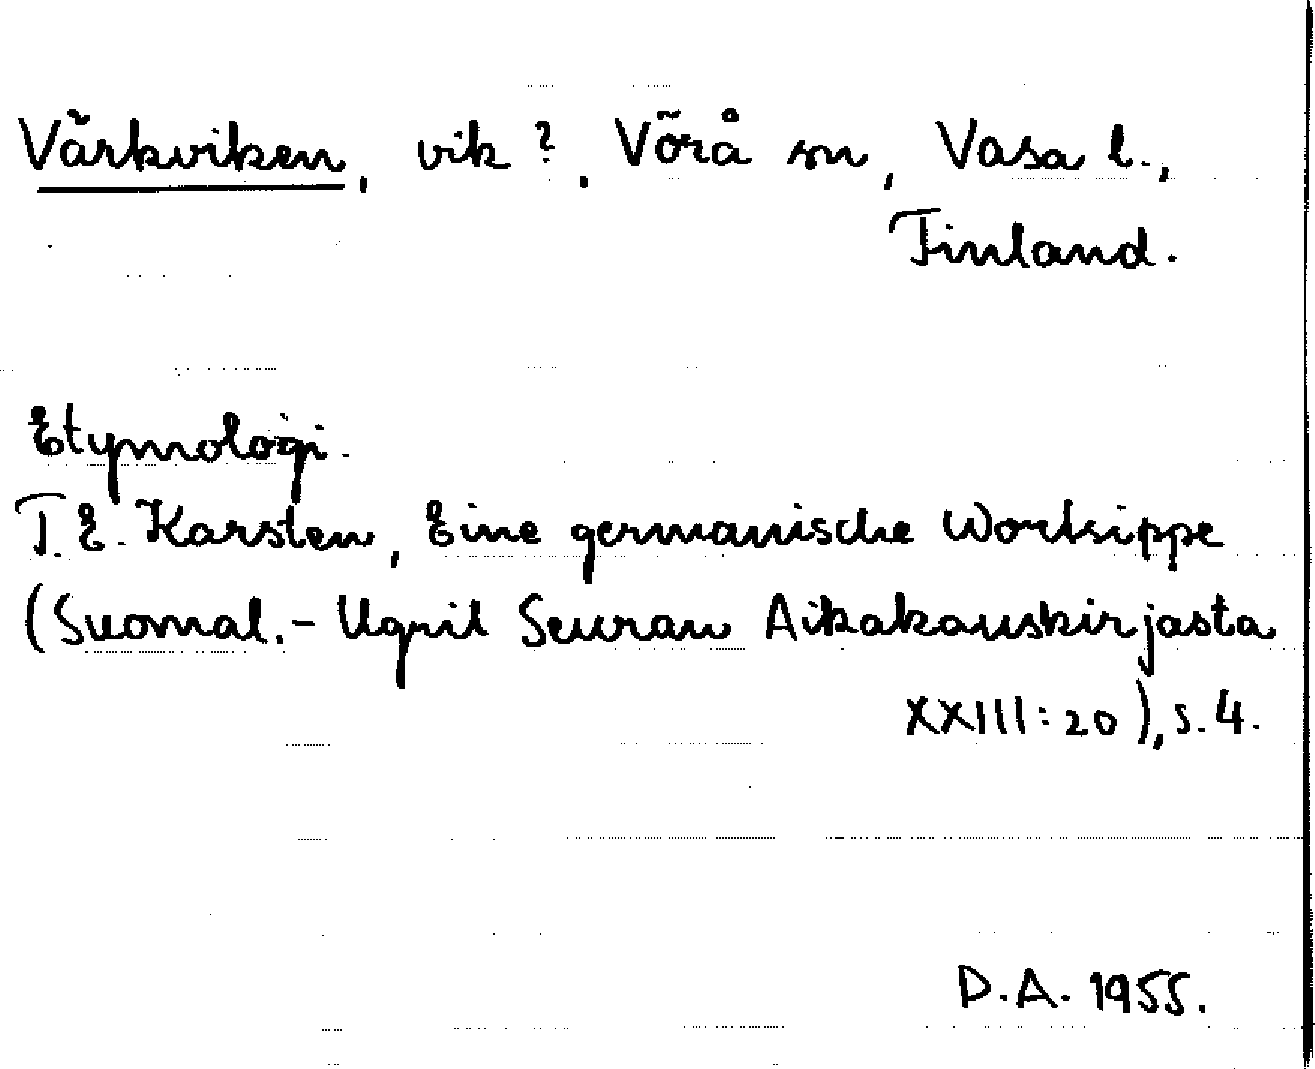 Värkviken, vik?, Vörå sn, Vasa l.,
Finland.
Etymologi.
T.E. Karsten, Eine germanische Wortsippe
(Suomal.- Ugril Seuran Aikakauskirjasta
XXIII:20), s. 4.
D.A. 1955.